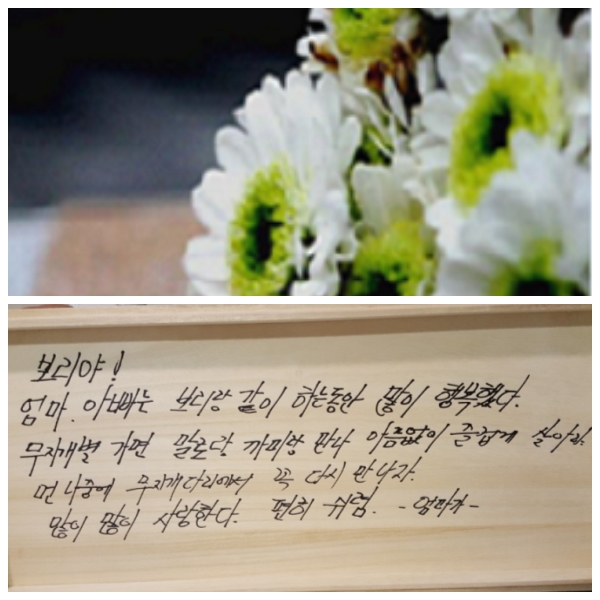 보리야!
엄마. 아빠는 보리랑 같이 하는동안 많이 행복했다.
무지개별 가면 말론랑 까미랑 만나 아픔없이 즐겁게 살아라.
먼 나중에 무지개다리에서 꼭 다시 만나자.
많이 많이 사랑한다. 편히 쉬렴. -엄마가-